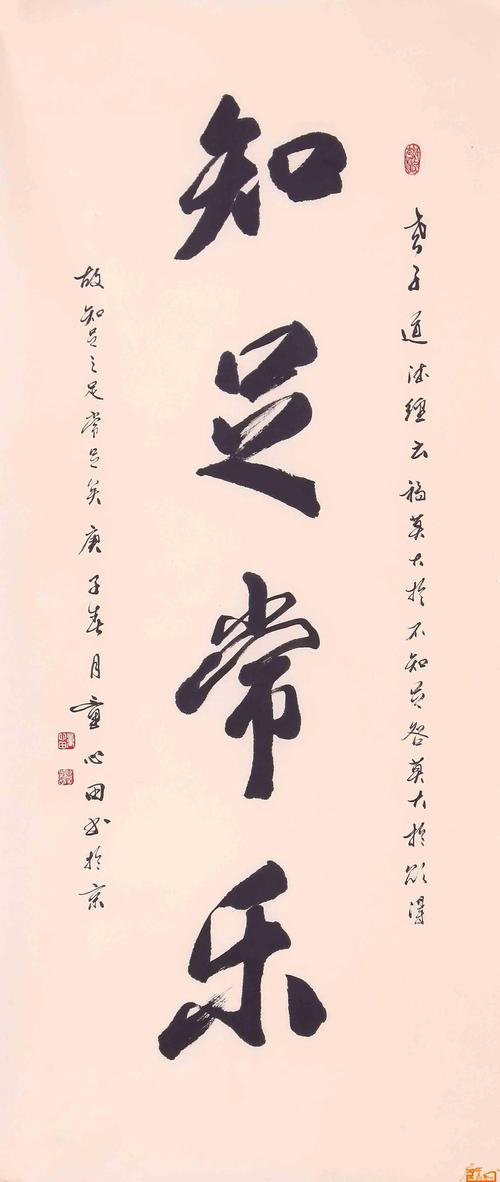 老子道德經云禍莫大於不知足咎莫大於欲得
知足常乐
故知足之足常足矣庚子春月童心田书於京